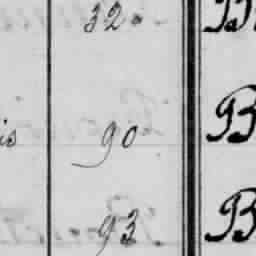 32 B
is 90 B
93 B